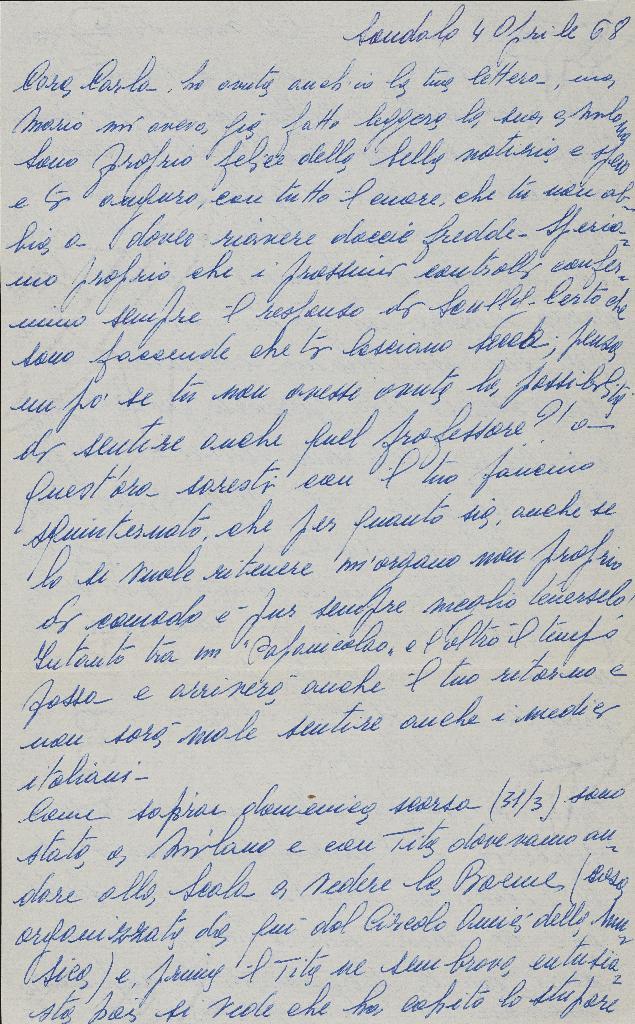 Sondalo 4 Aprile 68
Cara Carla, ho avuta anch'io la tua lettera, ma
Mario mi aveva già fatto leggere la sua a Milano
Sono proprio felice della bella notizia e spero
e ti auguro, con tutto il cuore, che tu non ab-
bia a dover riavere doccie fredde - Speria=
mo proprio che i prossimi controlli confer=
mino sempre il responso di Certo che
sono faccende che ti lasciano secchi; pensa
un po' se tu non avessi avuta la possibilità
di sentire anche quel professore?! a
quest'ora saresti con il tuo
squinternato, che per quanto sia, anche se
lo si vuole ritenere un organo non proprio
di comodo è pur sempre meglio tenerselo!
Intanto tra un "Papanicolao" e l'altro il tempo
passa e arriverà anche il tuo ritorno e
non sarà male sentire anche i medici
italiani -
Come saprai domenica scorsa (31/3) sono
stata a Milano e con Tita dovevamo an=
dare alla Scala a vedere la Boeme (cosa
organizzata da qui dal Circolo Amici della Mu=
sica) e, prima il Tita ne sembrava entusia=
sta poi si vede che ha capito lo